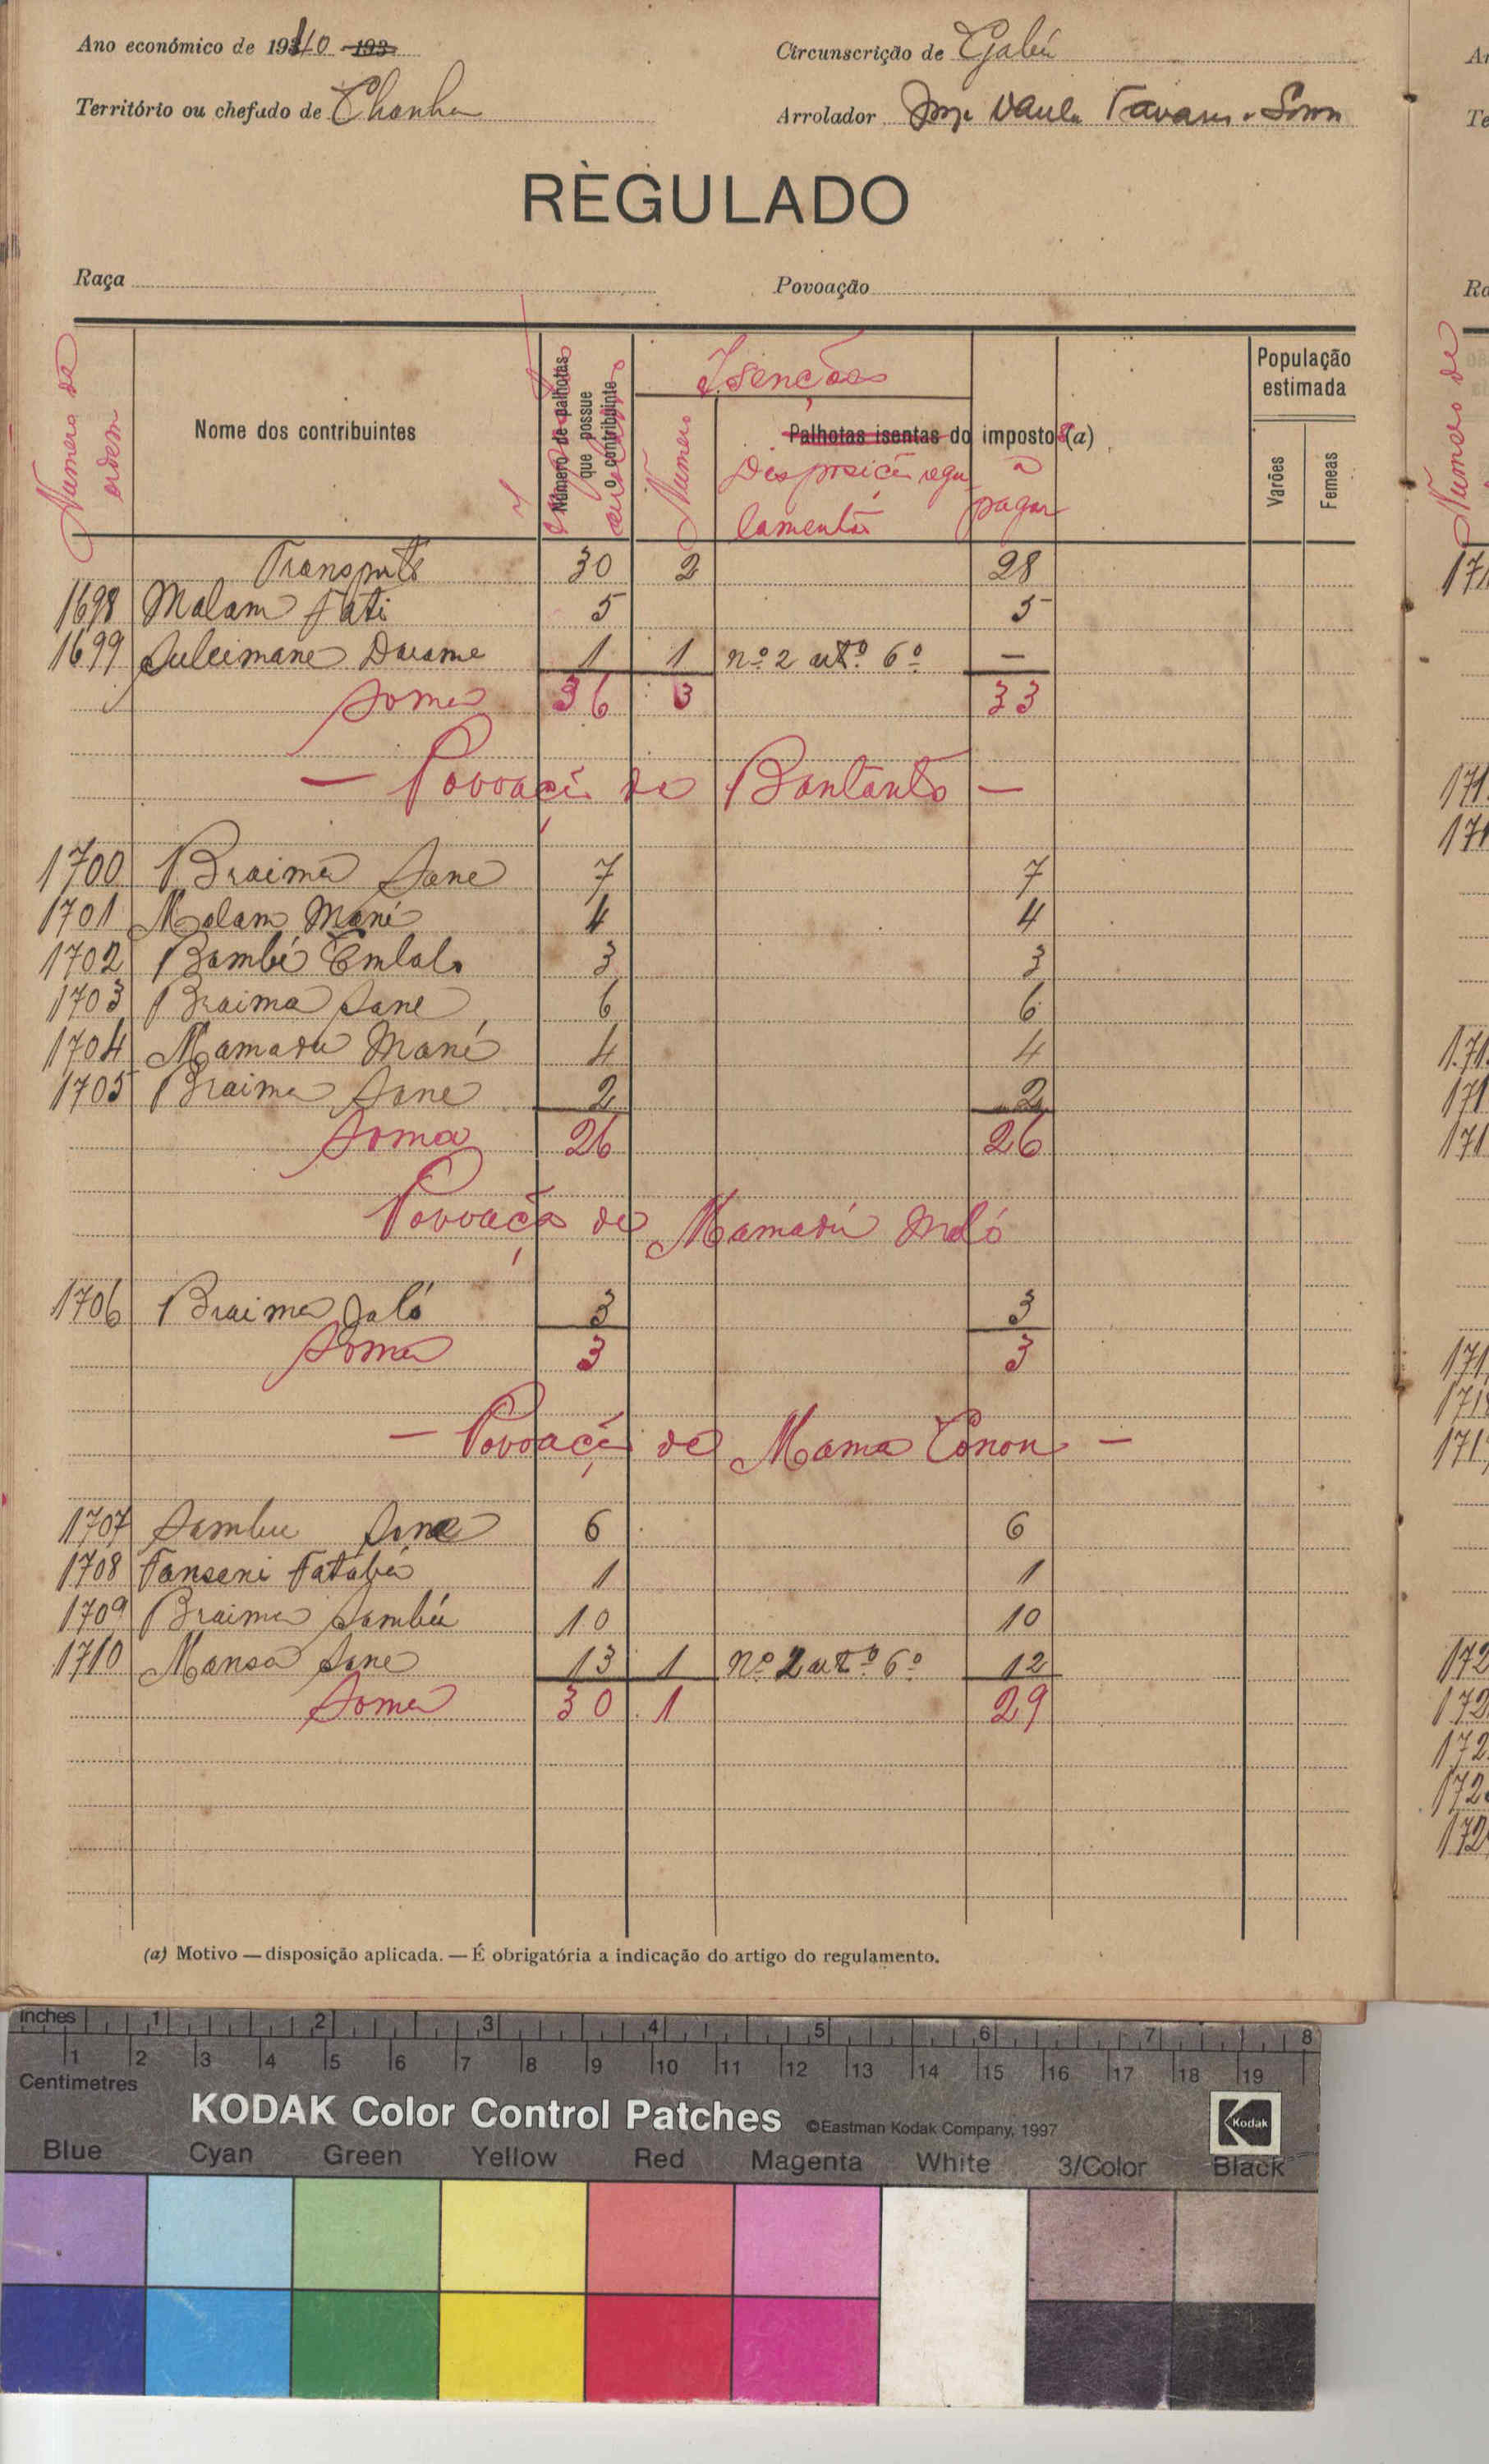 Ano económico de 1940 193
Circunscrição de Gabú
Território ou chefado de Chanha
Arrolador Jorge Tavares
REGULADO
Raça
Povoação
Numero de ordem
Nome dos contribuintes
Número de palhotas que possue o contribuinte
Isenções
Numero
Palhotas isentas do impostos (a)
Disposição regulamentar
a pagar
População estimada
Varões
Femeas
Transporte 30 2 28
1698 Malam Fati 5 5
1699 Suleimane Darame 1 1 nº 2 artº 6º —
Soma 36 3 33
— Povoação de Bantanto —
1700 Braima Sane 7 7
1701 Malam Mané 4 4
1702 Bambé Embalo 3 3
1703 Braima Sane 6 6
1704 Mamadu Mané 4 4
1705 Braima Sane 2 2
Soma 26 26
Povoação de Mamadú
1706 Braima Jaló 3 3
Soma 3 3
— Povoação de Mama Conon —
1707 Sambu Sane 6 6
1708 Fanseni Fatabá 1 1
1709 Braima Sambú 10 10
1710 Mansa Sane 13 1 Nº 2 artº 6º 12
Soma 30 1 29
(a) Motivo — disposição aplicada. — É obrigatória a indicação do artigo do regulamento.
inches 1 2 3 4 5 6 7 8
1 2 3 4 5 6 7 8 9 10 11 12 13 14 15 16 17 18 19
Centimetres
KODAK Color Control Patches ©Eastman Kodak Company, 1997 Kodak
Blue Cyan Green Yellow Red Magenta White 3/Color Black